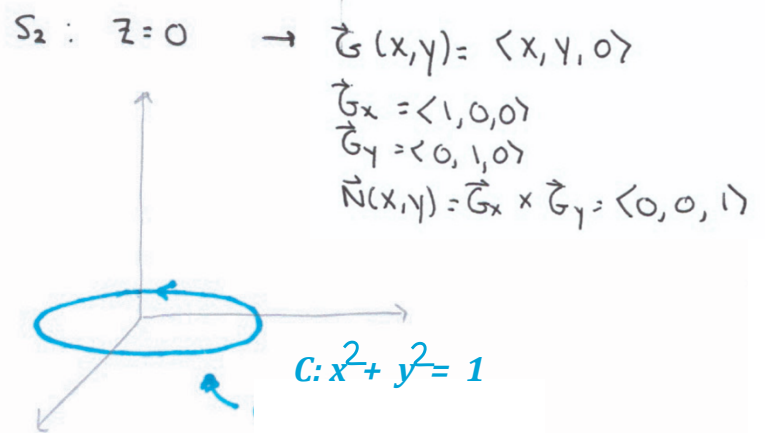 S₂ : Z=0 → G⃗(x,y)= <x,y,0>
G⃗x =<1,0,0>
G⃗y =<0,1,0>
N⃗(x,y)=G⃗x × G⃗y=<0,0,1>
C: x²+ y²= 1